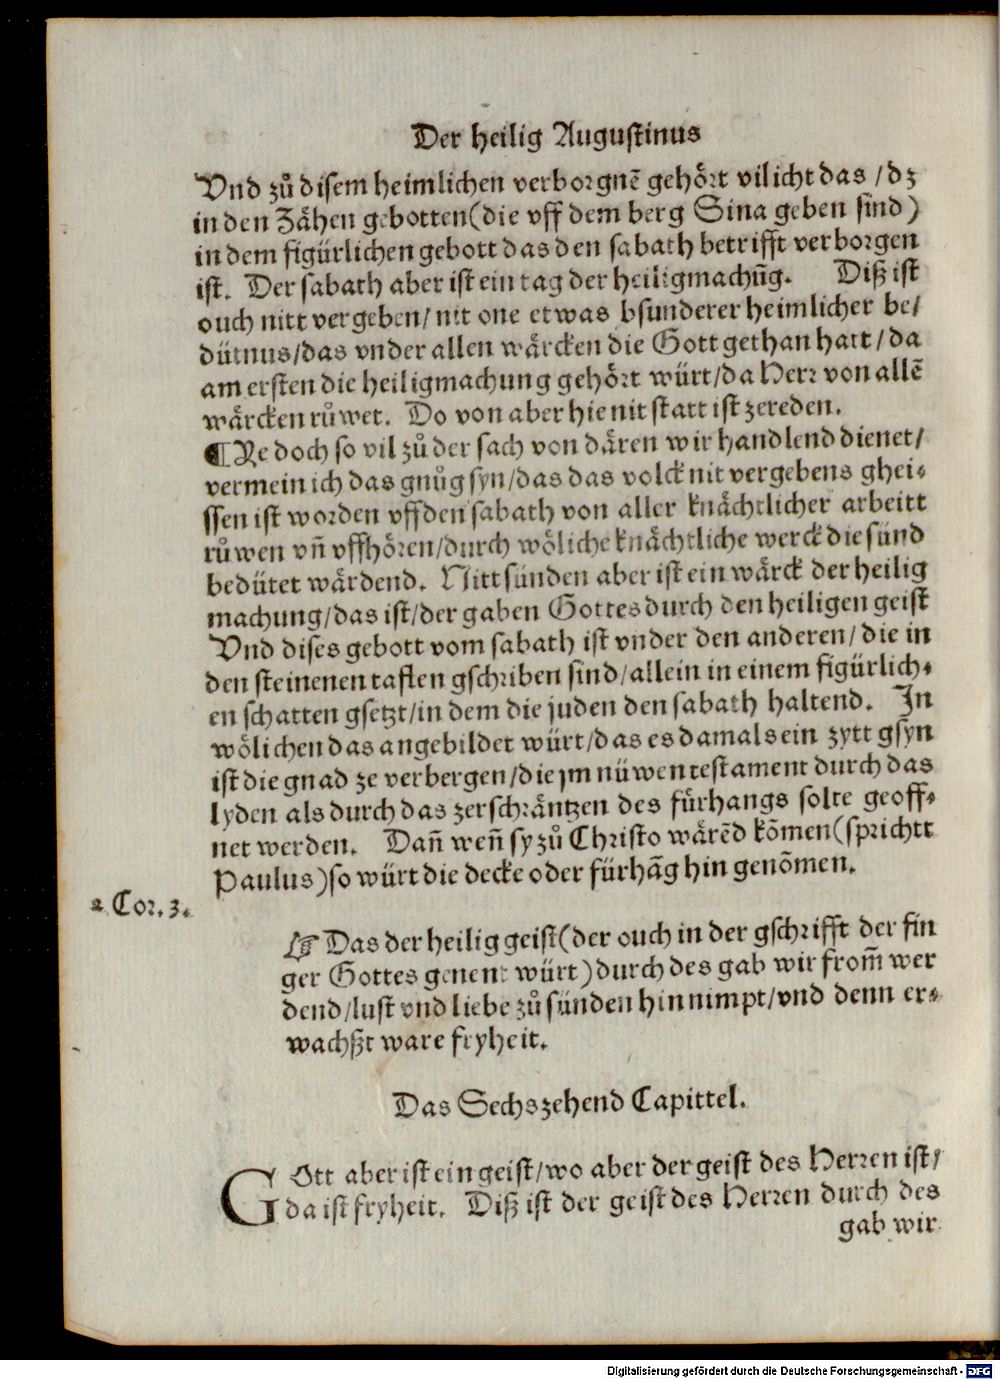 Der heilig Augustinus
Vnd zů disem heimlichen verborgnẽ gehört vilicht das / dz
in den Zähen gebotten (die vff dem berg Sina geben sind)
in dem figürlichen gebott das den sabath betrifft verborgen
ist. Der sabath aber ist ein tag der heiligmachũg. Diß ist
ouch nitt vergeben / nit one etwas bsunderer heimlicher be/
dütnus / das vnder allen wärcken die Gott gethan hatt / da
am ersten die heiligmachung gehört würt / da Herr von allẽ
wärcken růwet. Do von aber hie nit statt ist zereden.
¶ Je doch so vil zů der sach von dären wir handlend dienet /
vermein ich das gnůg syn / das das volck nit vergebens ghei-
ssen ist worden vff den sabath von aller knächtlicher arbeitt
růwen vñ vffhören / durch wöliche knächtliche werck die sünd
bedütet wärdend. Nitt sünden aber ist ein wärck der heilig
machung / das ist / der gaben Gottes durch den heiligen geist
Vnd dises gebott vom sabath ist vnder den anderen / die in
den steinenen taflen gschriben sind / allein in einem figürlich-
en schatten gsetzt / in dem die juden den sabath haltend. In
wölichen das angebildet würt / das es damals ein zytt gsyn
ist die gnad ze verbergen / die jm nüwen testament durch das
lyden als durch das zerschräntzen des fürhangs solte geoff-
net werden. Dañ weñ sy zů Christo wärẽd kõmen (sprichtt
Paulus) so würt die decke oder fürhãg hin genõmen.
2. Cor. 3.
☞ Das der heilig geist (der ouch in der gschrifft der fin
ger Gottes genent würt) durch des gab wir from̃ wer
dend / lust vnd liebe zů sünden hin nimpt / vnd denn er-
wachßt ware fryheit.
Das Sechszehend Capittel.
GOtt aber ist ein geist / wo aber der geist des Herren ist /
da ist fryheit. Diß ist der geist des Herren durch des
gab wir
Digitalisierung gefördert durch die Deutsche Forschungsgemeinschaft - DFG